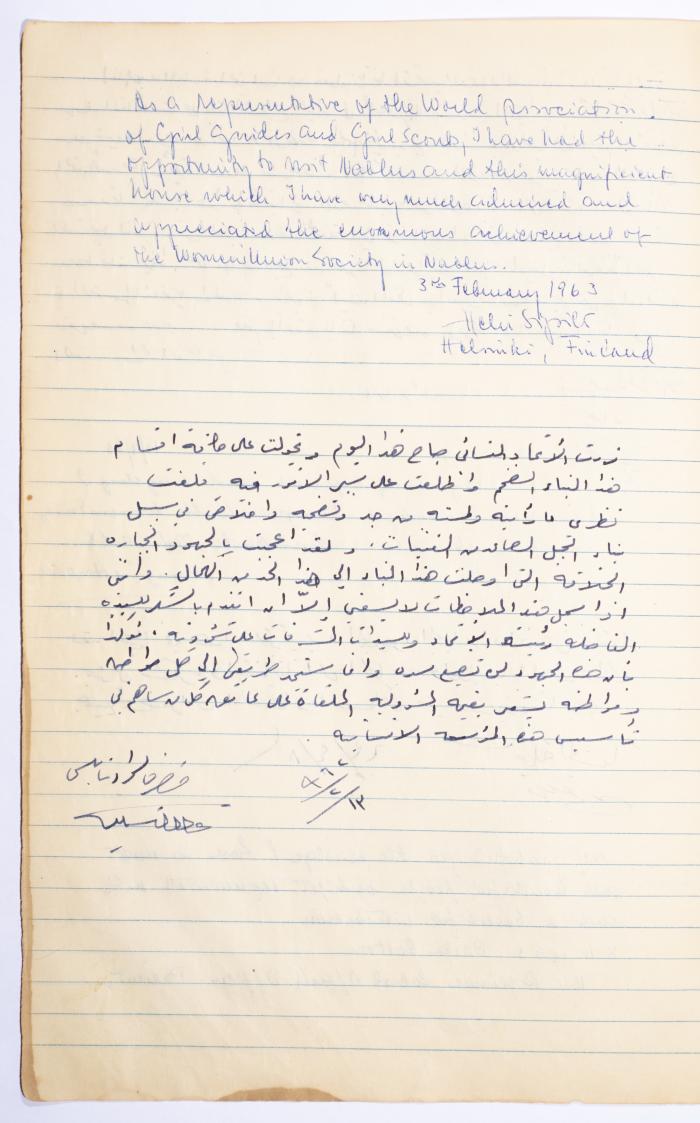 As a representative of the World Association
of Girl Guides and Girl Scouts, I have had the
opportunity to visit Nablus and this magnificient
house which I have very much admired and
appreciated the enormous achievement of
the Women Union Society in Nablus.
3rd February 1963
Helvi Sipilä
Helsinki, Finland
زرت الاتحاد النسائي صباح هذا اليوم وتجولت على كافة اقسام
هذا البناء الضخم واطلعت على سير الامور فيه فلفت
نظري ما رأيته ولمسته من جد وتضحية واخلاص في سبيل
بناء الجيل الصاعد من الفتيات. ولقد اعجبت بالجهود الجبارة
الخلاقة التي اوصلت هذا البناء الى هذا الحد من الكمال. وانني
اذ اسجل هذه الملاحظات لا يسعني إلاّ ان اتقدم بالشكر للسيدة
الفاضلة رئيسة الاتحاد وللسيدات المشرفات على شؤونه. مؤكدا
بأن هذه الجهود لن تضيع سدى وانها ستجد طريقها الى كل مواطن
ومواطنة يشعر بقيمة المسؤولية الملقاة على عاتقه كل من ساهم في
تأسيس هذه المؤسسة الانسانية